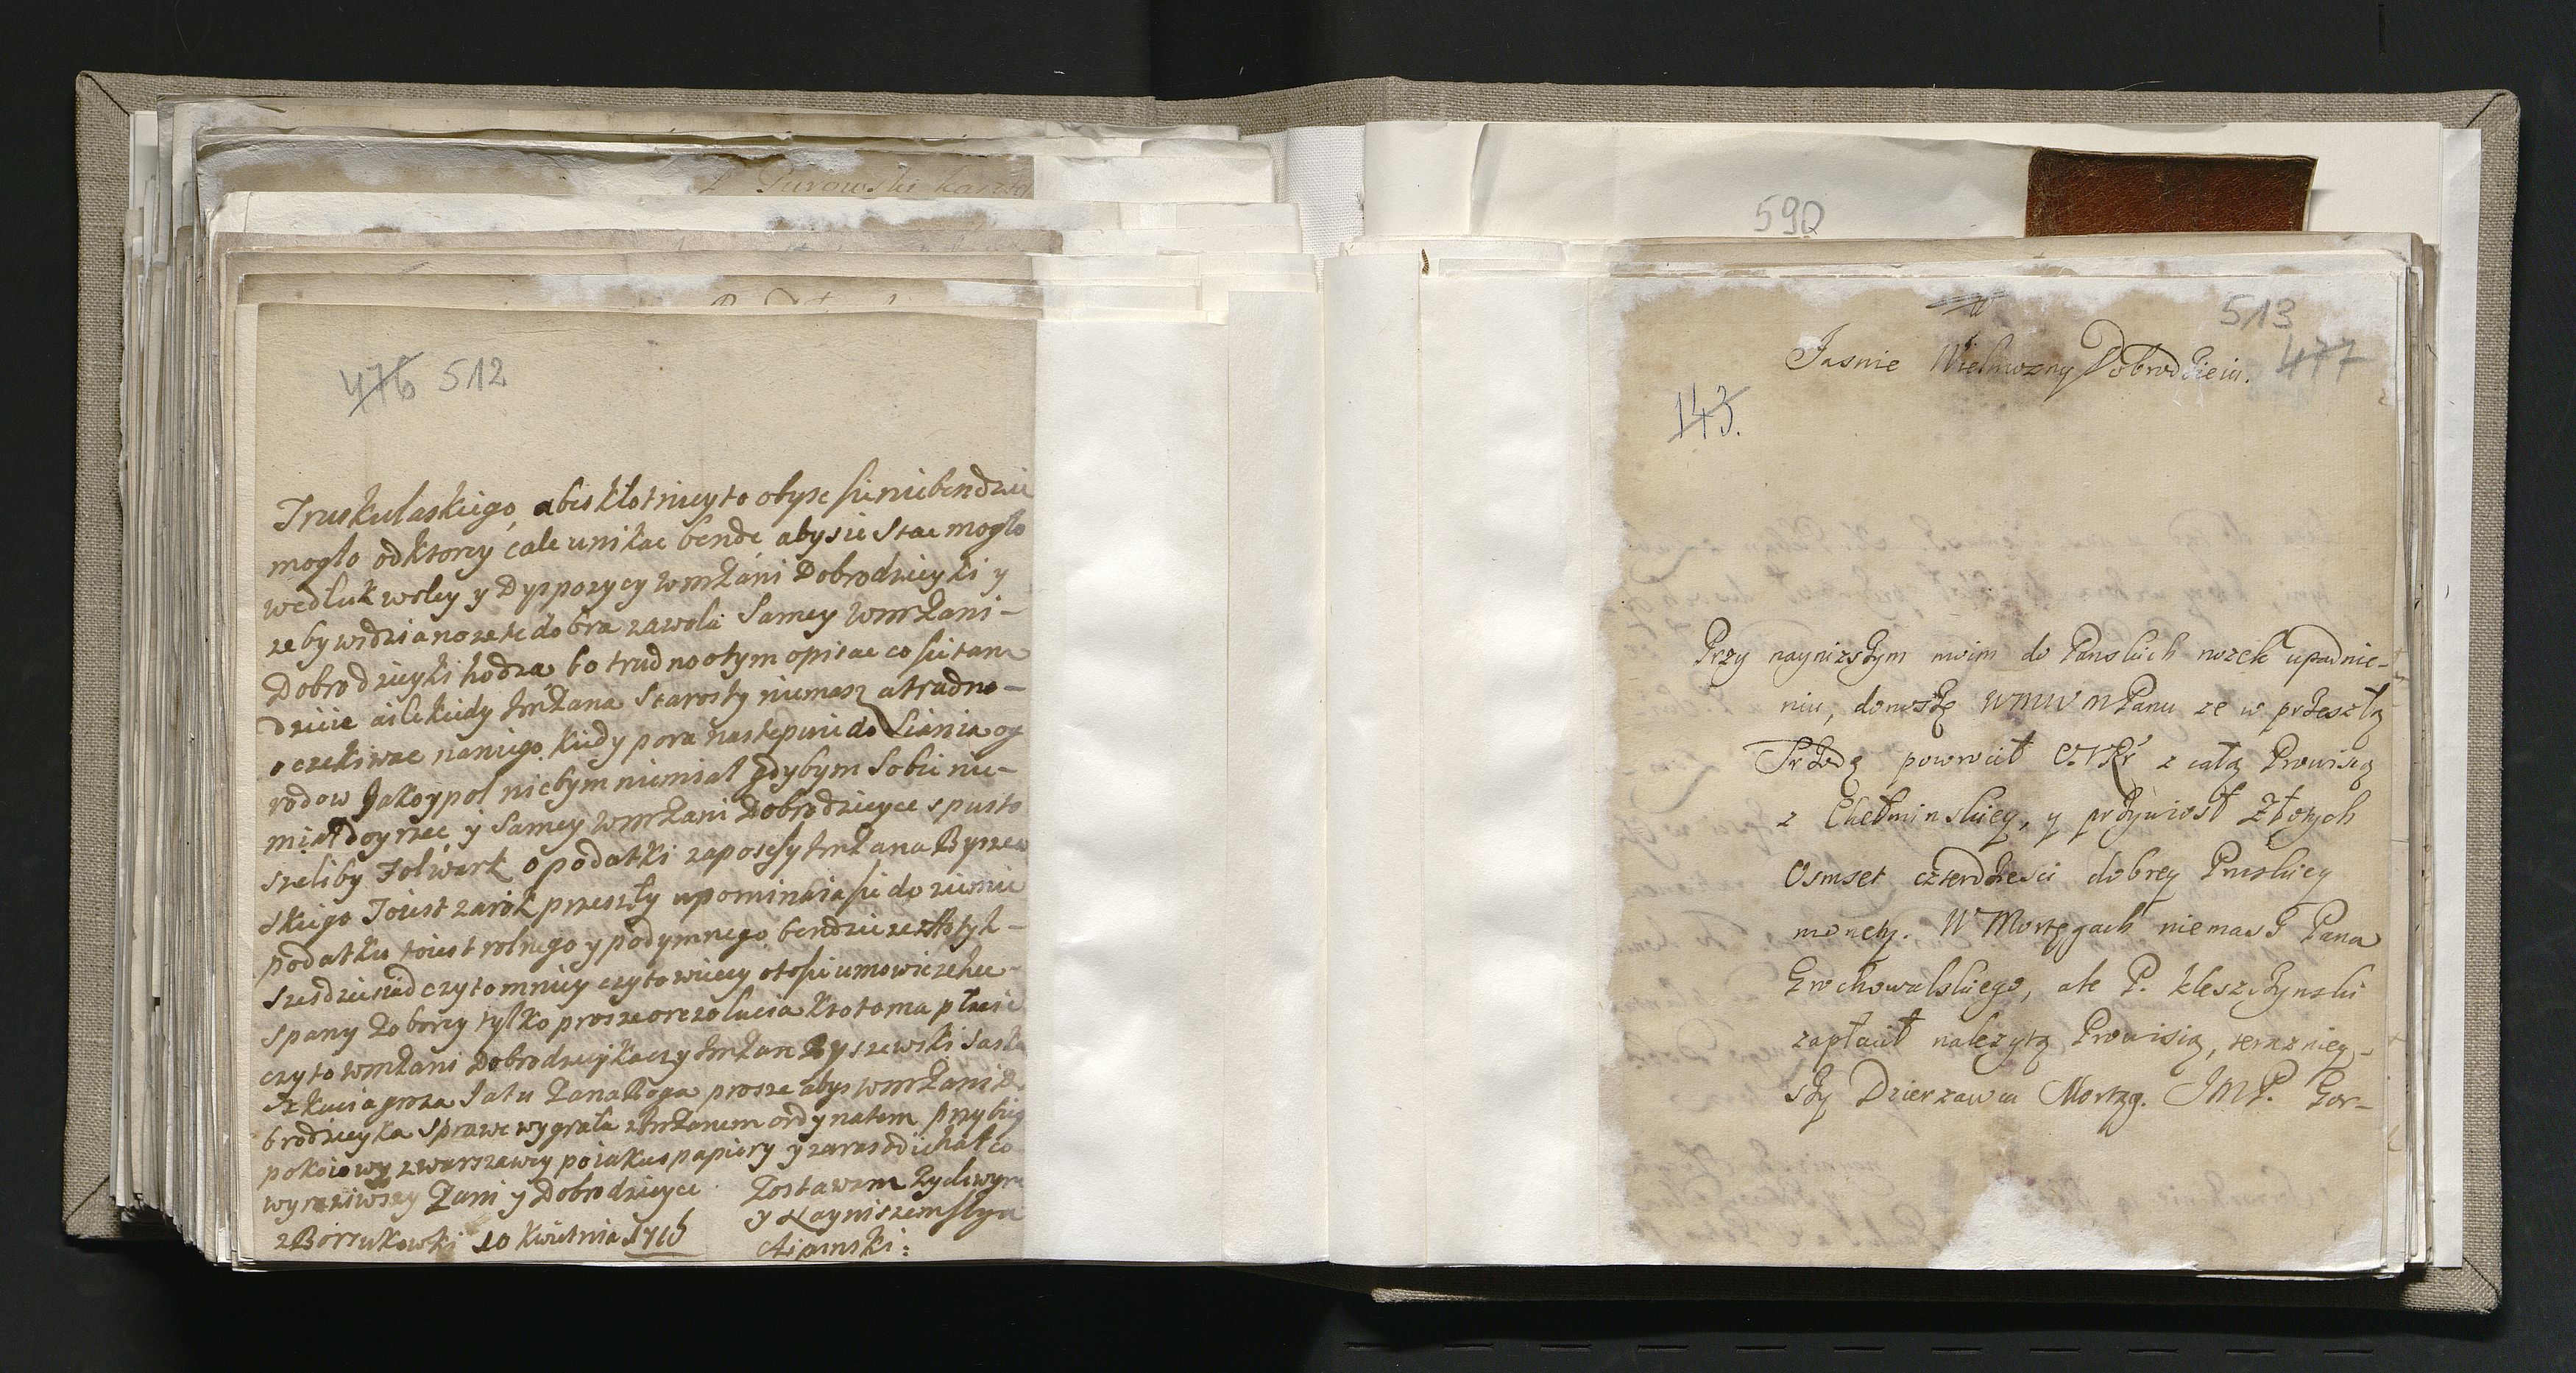 476 512
Truskulaskiego, abes kłotnieyto obysc sie niebendzie
mogło odktorey cale unikac bende abysie Stac mogło
wedluk woley y Dyspozycy wmPani Dobrodzieyki y
zeby widziano zete dobra zawola Samey WmPani-
Dobrodzieyki hodza bo trudno otym opisac co sie tam
Dzieie ailekiedy ImPana Starosty niemasz atrudno-
oczekiwac naniego kiedy pora nastepuie do Siania og
rodow Jako y pol niebym niemiał gdybym Sobie nie-
miał doyrzec y Samey WmPani Dobrodzieyce spusto
szeliby Folwark o podatki zaposesyImPana Ryszew
skiego Toiest zarok przeszły upominaia sie do ziemie
podatku toiest rolnego y podymnego bendzie ze złotyh-
Szesdziesiad czyto mniey czyto wiecy otosie umowie zehce-
spany poborcy tylko prosze orezolucia ktotoma płacic
czyto wmPani Dobrodzieyka czy ImPan Ryszewski Saska
Izkucia groza Jatu PanaBoga prosze abys wmPani D
brodzieyka sprawe wygrała zImPanem ordynatem przybieg
pokoiowy zwarszawey poiakies papiery y zaras odiehał co
wyraziwszy Pani y Dobrodzieyce Zostawam zyczliwym
y Nayniszem slugą
zBorzukowki 10 Kwietnia 1716
590
513
Jasnie Wielmozny Dobrodzieiu. 477
143.
Przy naynizszym moim do Panskich nozek upadnie-
niu, donoszę WMWMPanu ze w przeszłą
Srzodę powrocił z całą Prowisią
z Chełminskiey, y przywiosł Złotych
Osmset czterdziesci dobrey Pruskiey
monety. W Mortęgach niemasz Pana
Grochowalskiego, ale P. Kleszczynski
zapłacił nalezytą Prowisią, terazniey-
szy Dzierzawca Mortzg. JMP. Gor-